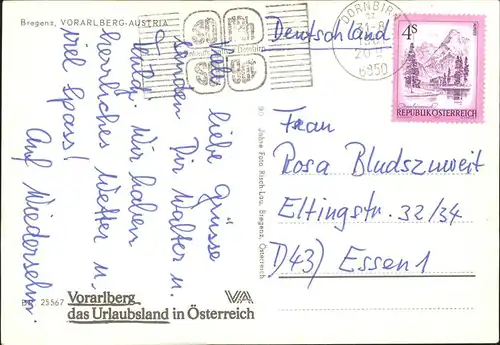 Bregenz, VORARLBERG-AUSTRIA
Viele liebe Grüsse
senden Dir Walter u.
Wir haben
herrliches Wetter u.
viel Spass!
Auf Wiedersehn.
90 Jahre Foto Risch-Lau, Bregenz, Österreich
25567
Vorarlberg
das Urlaubsland in Österreich
Deutschland
DORNBIRN
6850
4S
REPUBLIK ÖSTERREICH
Frau
Rosa Bludszuweit
Eltingstr. 32/34
D43) Essen 1